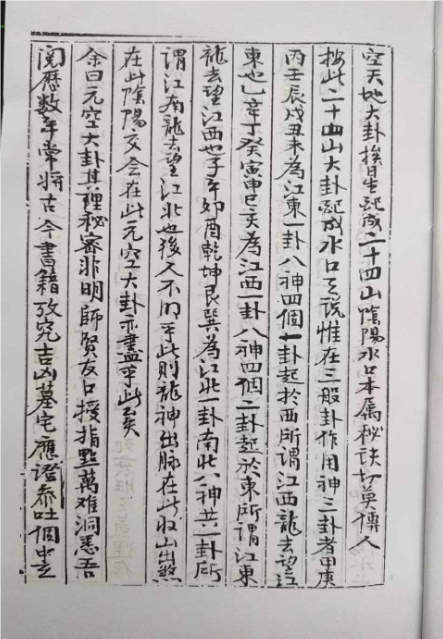 空天地大卦挨星起成二十四山陰陽水口本属秘诀切莫傳人
按此二十四山大卦起成水口之说惟在三般卦作用神三卦者甲庚
丙壬辰戌丑未為江東一卦八神四個一卦起於西所謂江西龍去望江
東也乙辛丁癸寅申巳亥為江西一卦八神四個二卦起於東所謂江東
龍去望江西也子午卯酉乾坤艮巽為江北一卦南北八神共一卦所
謂江南龍去望江北也後人不明乎此則龍神出脉在此收山出煞
在此陰陽交会在此元空大卦亦盡乎此矣
余曰元空大卦其理秘審非明師賢友口授指點萬难洞悉吾
閱歷数年常将古今書籍攷究吉凶墓宅應證泰吐個中玄